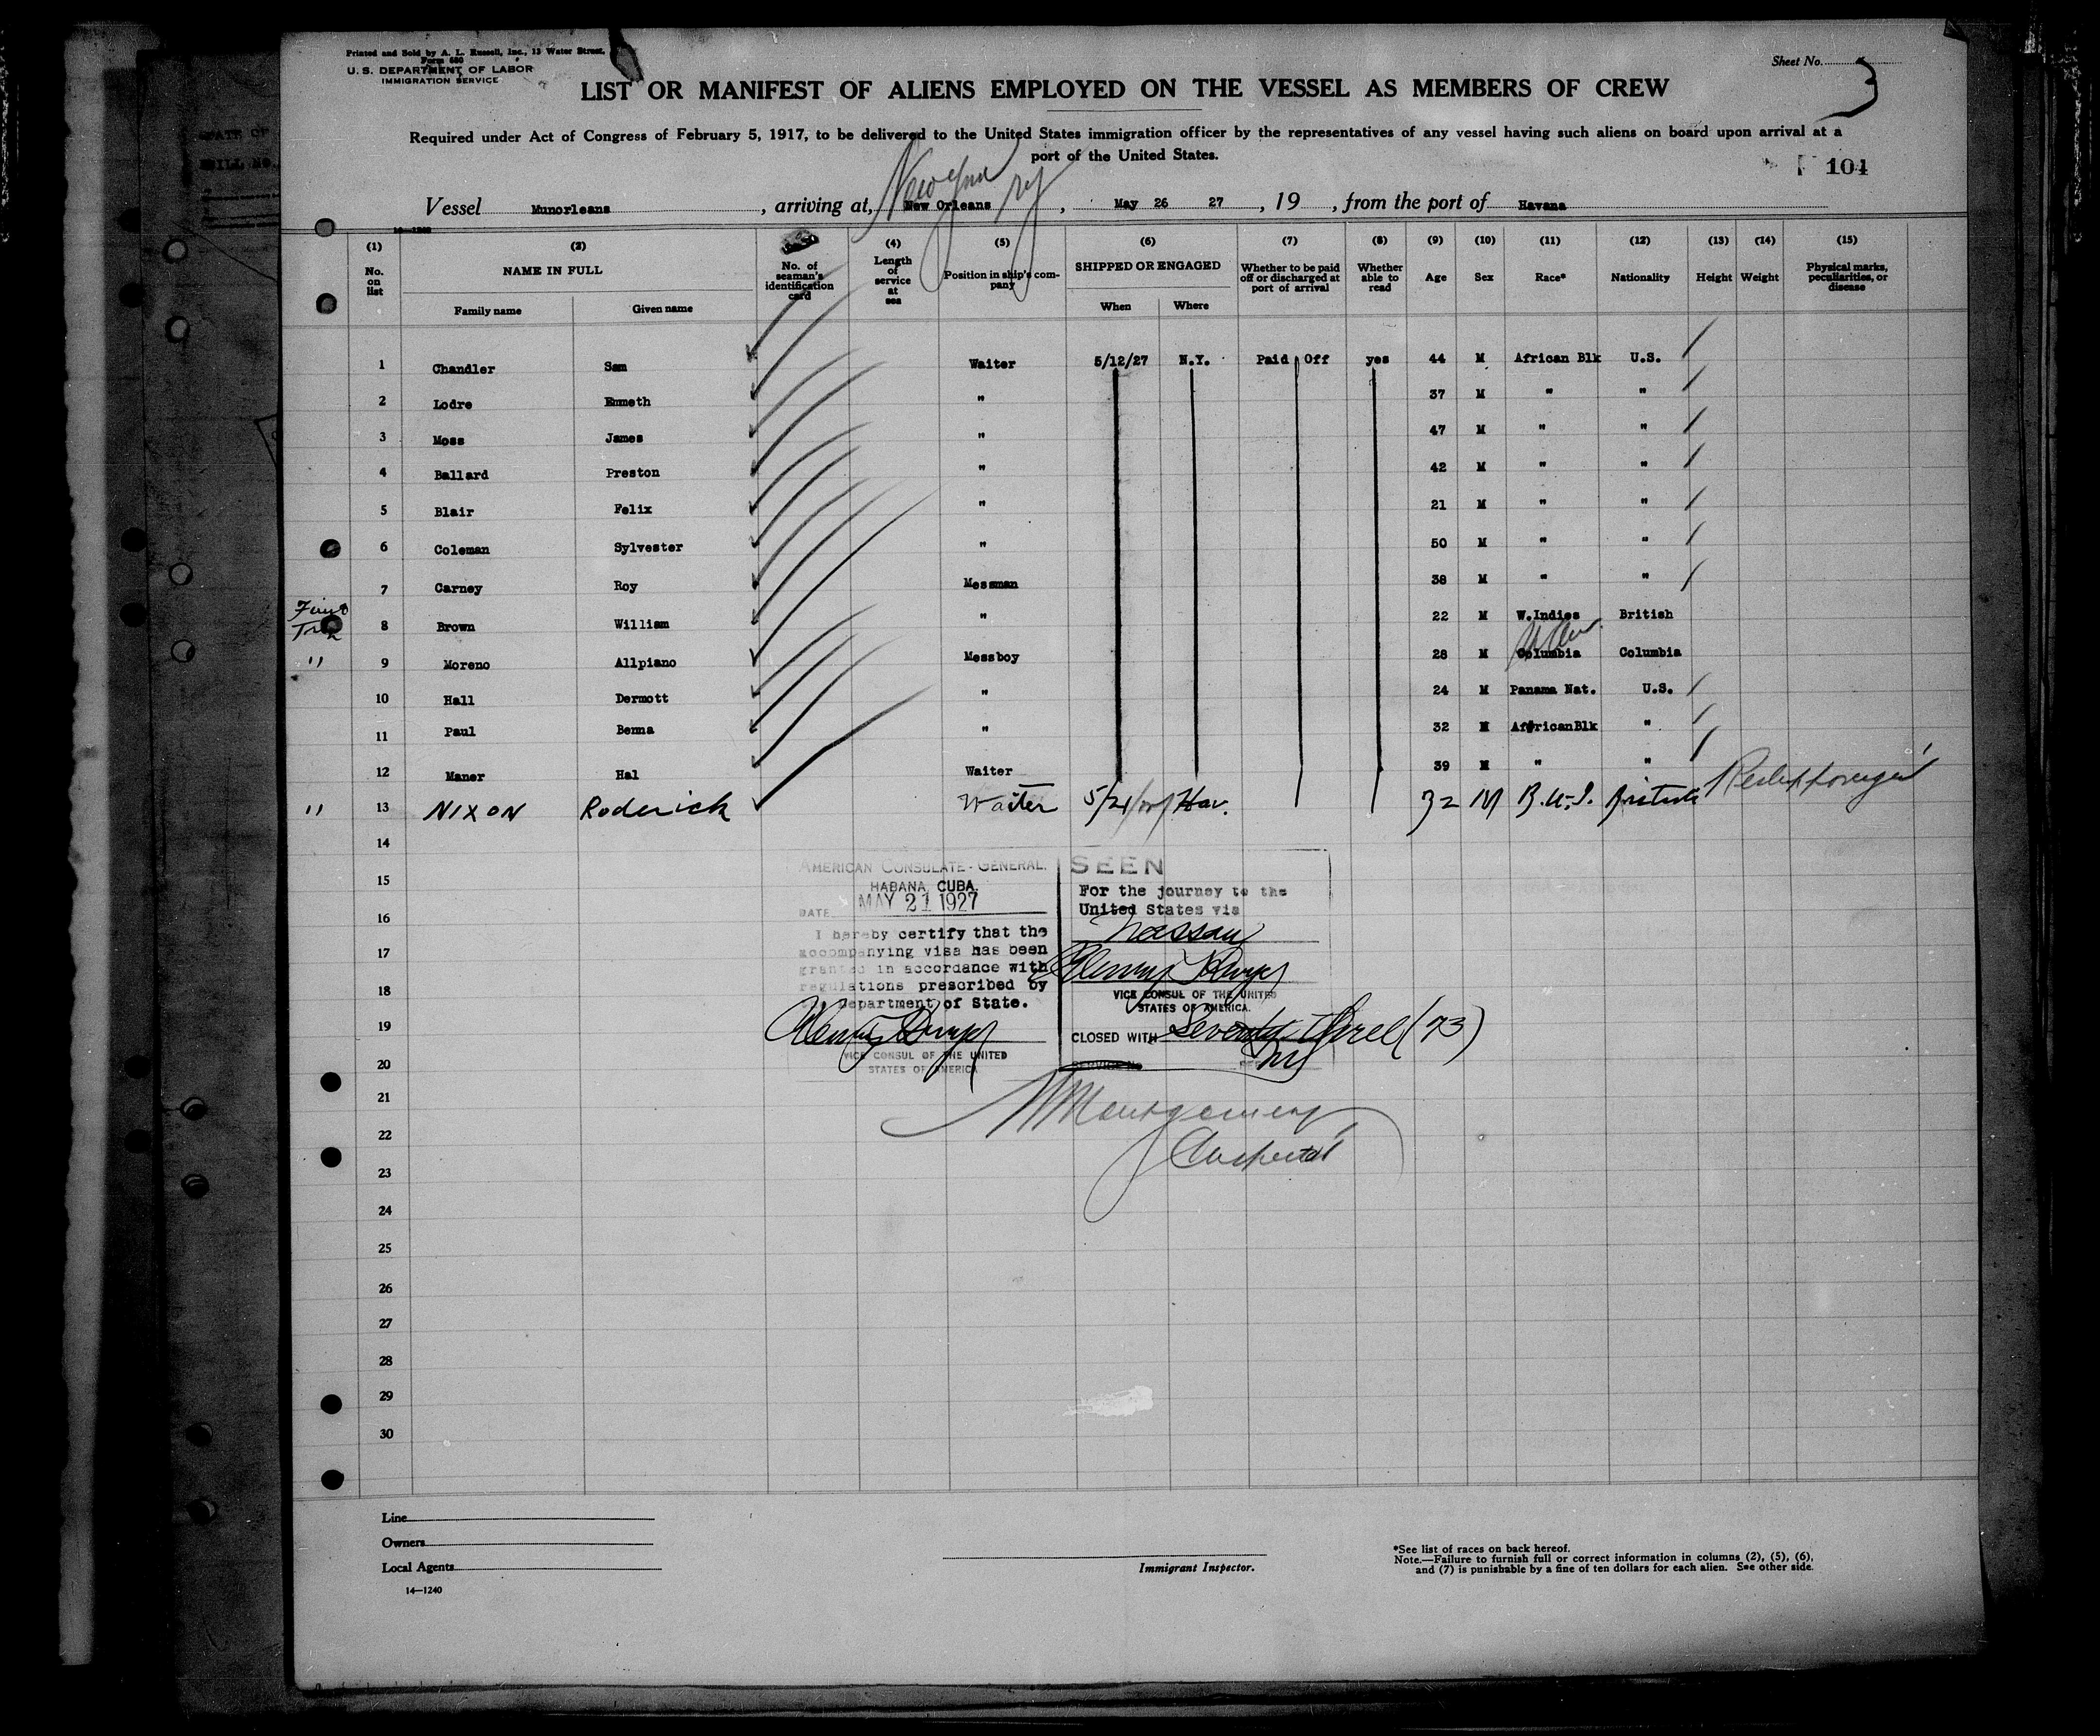 Printed and Sold by A. L. Russell, Inc., 13 Water Street,
Form 680
U. S. DEPARTMENT OF LABOR
IMMIGRATION SERVICE
Sheet No. 3
LIST OR MANIFEST OF ALIENS EMPLOYED ON THE VESSEL AS MEMBERS OF CREW
Required under Act of Congress of February 5, 1917, to be delivered to the United States immigration officer by the representatives of any vessel having such aliens on board upon arrival at a
port of the United States.
104
Vessel Munorleans, arriving at, New Orleans, May 26 27, 19 , from the port of Havana
(1) (2) (4) (5) (6) (7) (8) (9) (10) (11) (12) (13) (14) (15)
No. on list NAME IN FULL No. of seaman's identification card Length of service at sea Position in ship's company SHIPPED OR ENGAGED Whether to be paid off or discharged at port of arrival Whether able to read Age Sex Race* Nationality Height Weight Physical marks, peculiarities, or disease
Family name Given name When Where
1 Chandler Sam Waiter 5/12/27 N.Y. Paid Off yes 44 M African Blk U.S.
2 Lodre Emmeth " 37 M " "
3 Moss James " 47 M " "
4 Ballard Preston " 42 M " "
5 Blair Felix " 21 M " "
6 Coleman Sylvester " 50 M " "
7 Carney Roy Messman 38 M " "
First
Trip 8 Brown William " 22 M W.Indies British
" 9 Moreno Allpiano Messboy 28 M Columbia Columbia
10 Hall Dermott " 24 M Panama Nat. U.S.
11 Paul Benna " 32 M AfricanBlk "
12 Maner Hal Waiter 39 M " "
" 13 NIXON Roderick Waiter 5/21/27 Hav. 32 M B.W.I. British
14
15
16
17
18
19
20
21
22
23
24
25
26
27
28
29
30
AMERICAN CONSULATE-GENERAL.
HABANA, CUBA.
DATE MAY 21 1927
I hereby certify that the
accompanying visa has been
granted in accordance with
regulations prescribed by
Department of State.
VICE CONSUL OF THE UNITED
STATES OF AMERICA
SEEN
For the journey to the
United States via
Nassau
VICE CONSUL OF THE UNITED
STATES OF AMERICA.
CLOSED WITH Seventy three (73)
SERVICE No.
Montgomery
Inspector
Line
Owners
Local Agents
14—1240
Immigrant Inspector.
*See list of races on back hereof.
Note.—Failure to furnish full or correct information in columns (2), (5), (6),
and (7) is punishable by a fine of ten dollars for each alien. See other side.